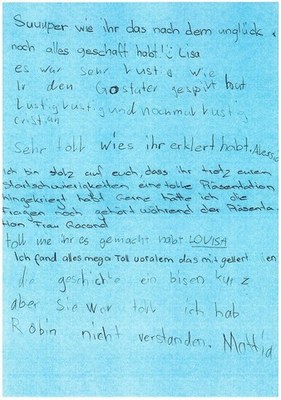 Suuuper wie ihr das nach dem unglück
noch alles geschaft habt! Lisa
es war sehr Lustig wie
Ir den Gostater gespirt habt
Lustig Lustig und nochmal Lustig
cristian
Sehr toll wies ihr erklert habt.
Ich bin stolz auf euch, dass ihr trotz euren
Startschwierigkeiten eine tolle Präsentation
hingekriegt habt. Gerne hätte ich die
Fragen noch gehört während der Präsenta-
tion Frau
toll wie ihr es gemacht habt LOUISA
Ich fand alles mega Toll voralem das mit
die geschichte ein bisen kurz
aber Sie war toll ich hab
Robin nicht verstanden. Mattia